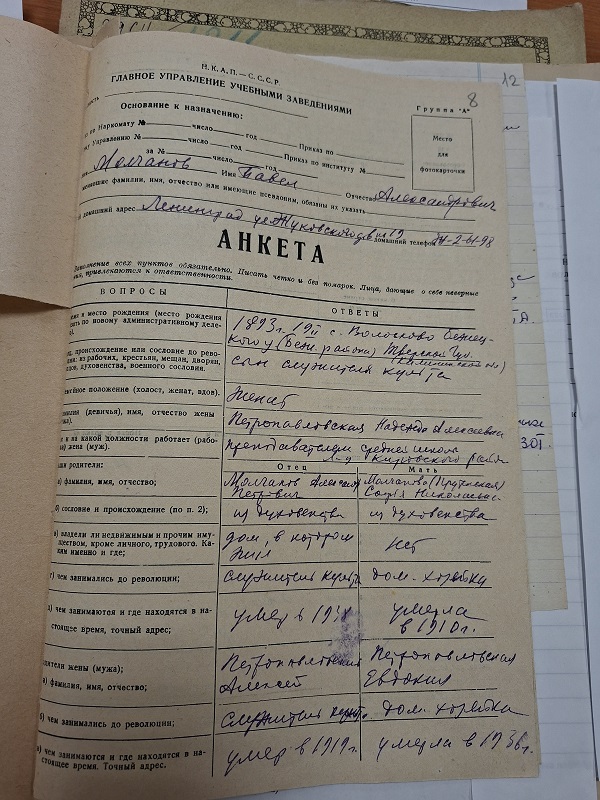 12
8
Н.К.А.П.—С.С.С.Р.
ГЛАВНОЕ УПРАВЛЕНИЕ УЧЕБНЫМИ ЗАВЕДЕНИЯМИ
Группа "А"
Основание к назначению:
по Наркомату № число год Приказ по
Управлению № число год Приказ по институту №
за № число год
Место для фотокарточки
Молчанов Имя Павел Отчество Александрович
менявшие фамилии, имя, отчество или имеющие псевдоним, обязаны их указать
домашний адрес Ленинград ул. Жуковского домашний телефон
АНКЕТА
Заполнение всех пунктов обязательно. Писать четко и без помарок. Лица, дающие о себе неверные
привлекаются к ответственности.
ВОПРОСЫ ОТВЕТЫ
и место рождения (место рождения
по новому административному деле-
1893г. с. Волосково Бежец-
кого у (Беж. района) Тверской Губ.
происхождение или сословие до рево-
из рабочих, крестьян, мещан, дворян,
духовенства, военного сословия.
сын служителя культа
положение (холост, женат, вдов).
женат
(девичья), имя, отчество жены
Петропавловская Надежда Алексеевна
и на какой должности работает (рабо-
жена (муж).
преподавателем средней школы
Кировского района
родители: Отец Мать
а) фамилия, имя, отчество;
Молчанов Александр Петрович
Молчанова София Николаевна
сословие и происхождение (по п. 2);
из духовенства из духовенства
в) владели ли недвижимым и прочим иму-
ществом, кроме личного, трудового. Ка-
ким именно и где;
дом, в котором жил нет
чем занимались до революции;
служитель культа дом. хозяйка
чем занимаются и где находятся в на-
стоящее время, точный адрес;
умер в умерла в 1910г.
жены (мужа);
а) фамилия, имя, отчество;
Петропавловский Алексей
Петропавловская Евдокия
б) чем занимались до революции;
служитель культа дом. хозяйка
чем занимаются и где находятся в на-
стоящее время. Точный адрес.
умер в 1919г. умерла в 1936г.
301.